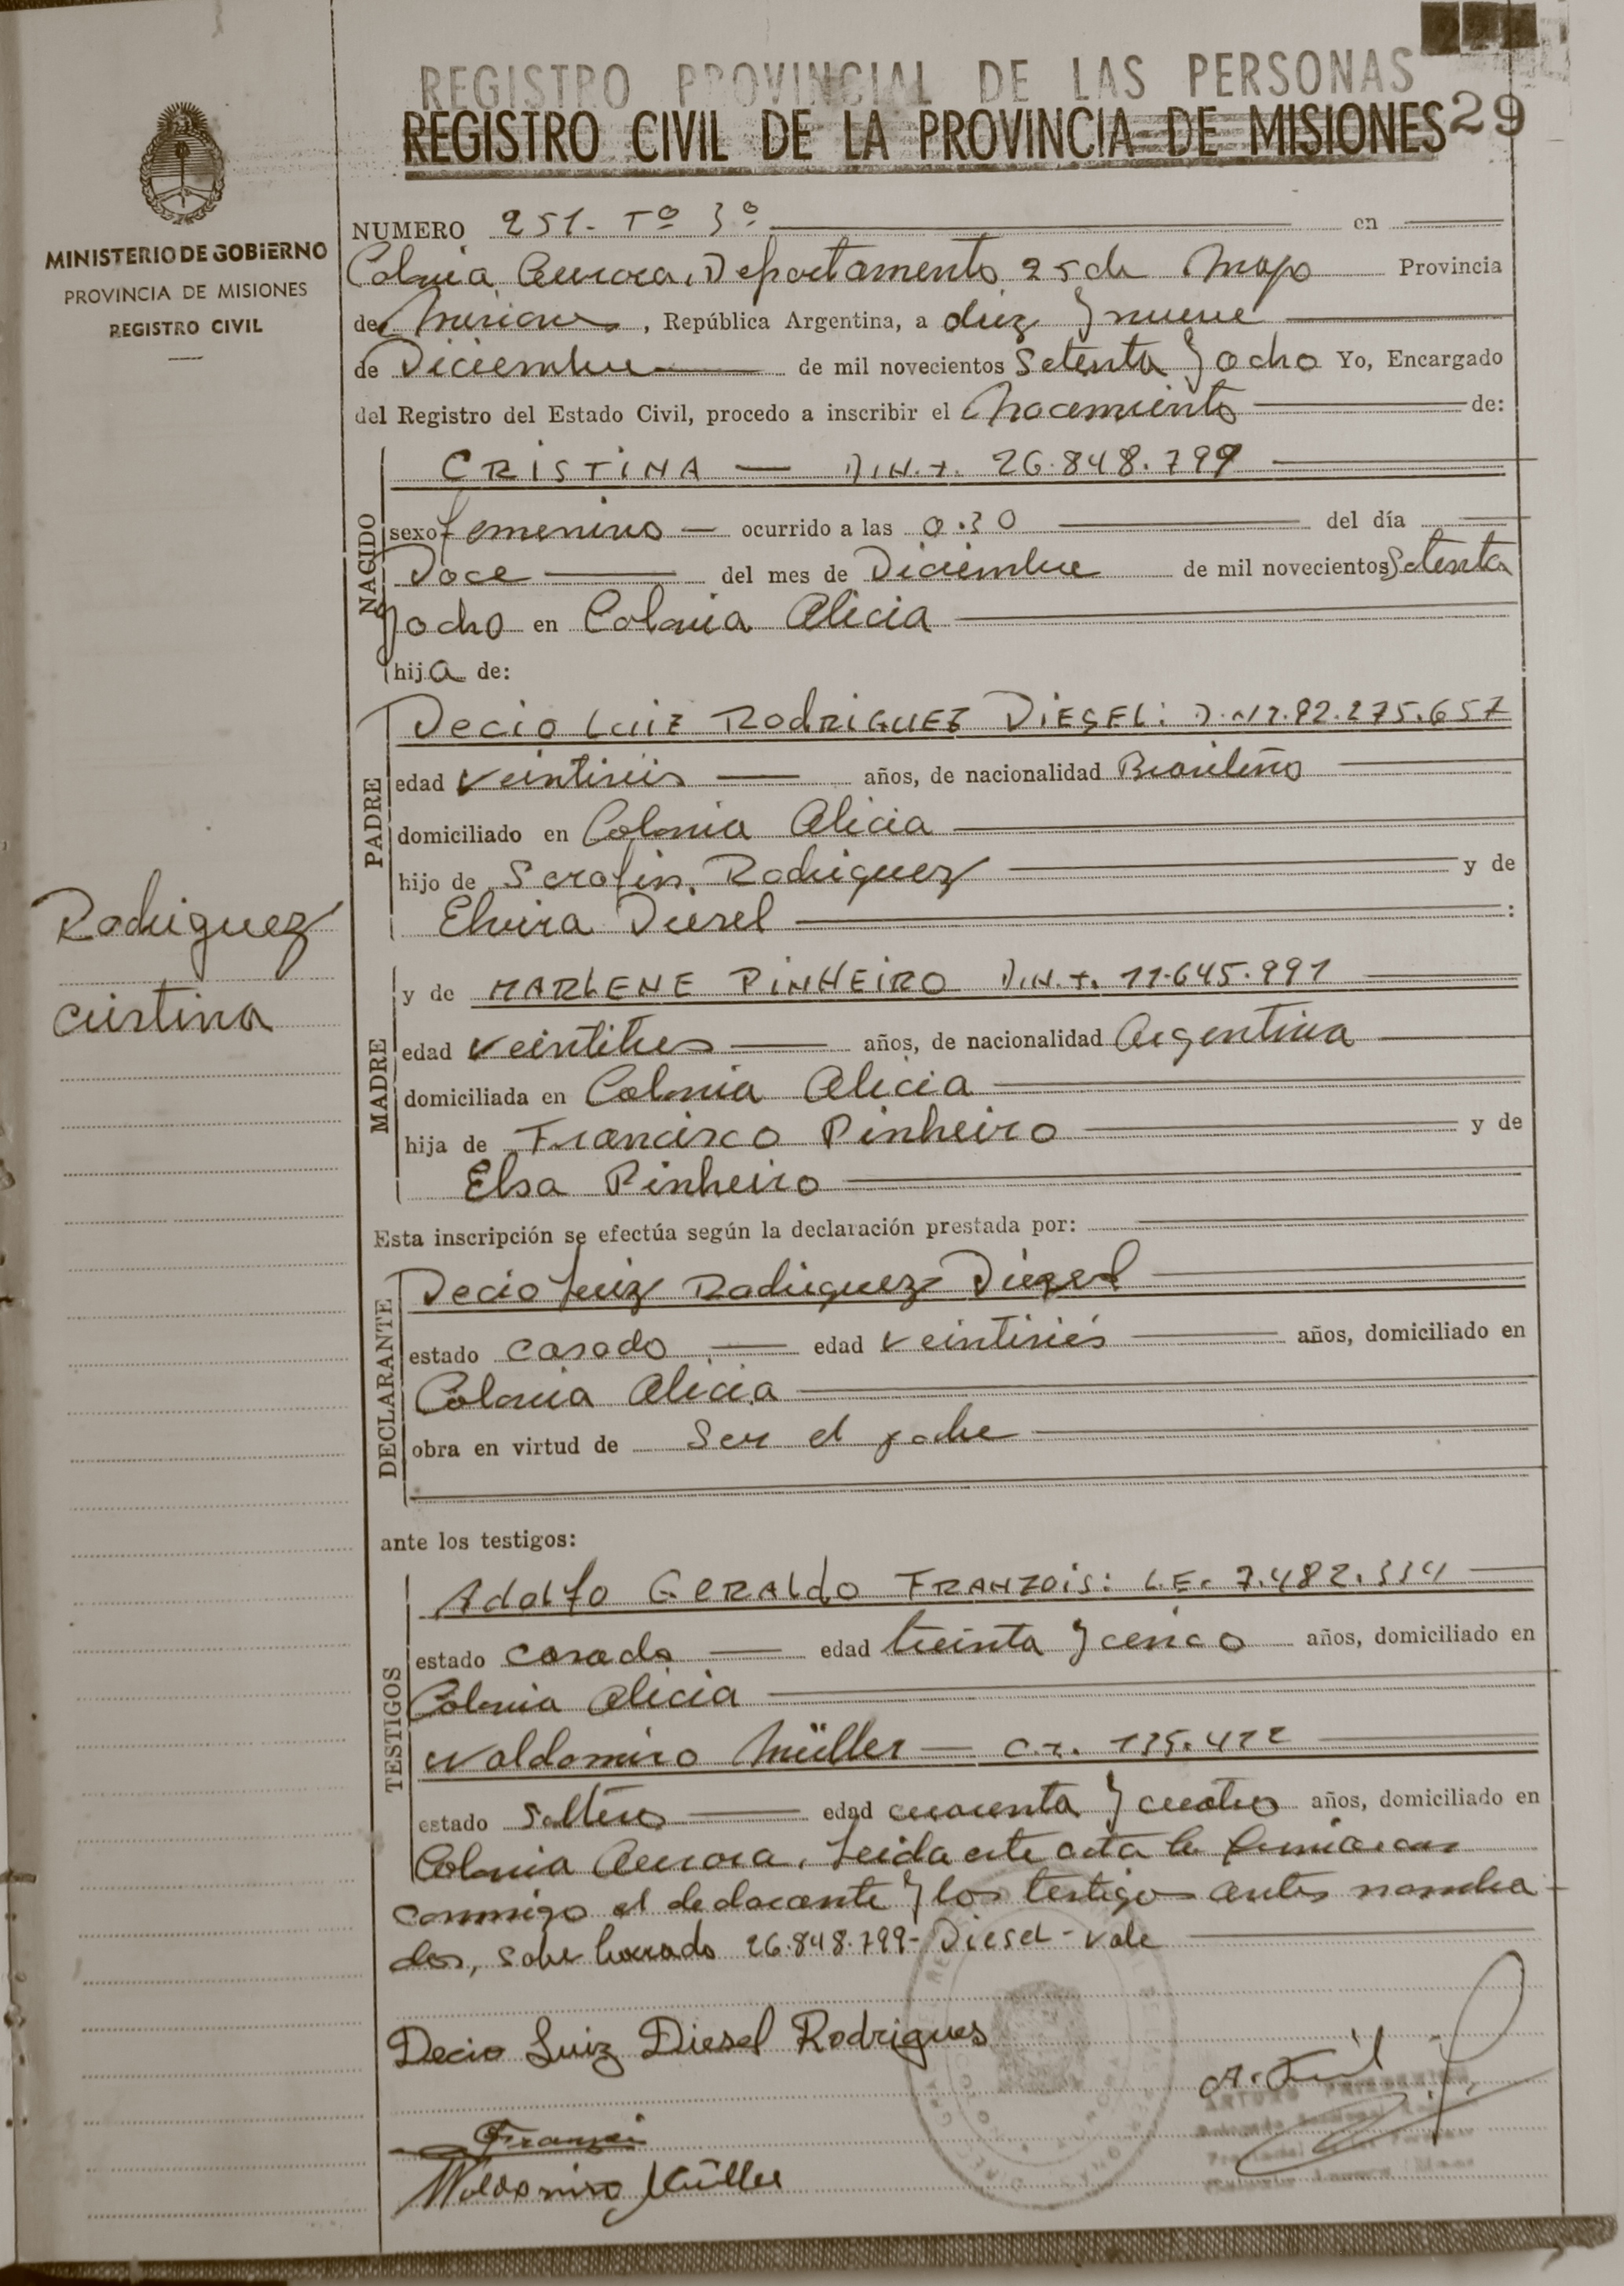 REGISTRO PROVINCIAL DE LAS PERSONAS
REGISTRO CIVIL DE LA PROVINCIA DE MISIONES 29
MINISTERIO DE GOBIERNO
PROVINCIA DE MISIONES
REGISTRO CIVIL
NUMERO 251- Tº 3º en
Colonia Aurora, Departamento 25 de Mayo Provincia
de Misiones, República Argentina, a diez y nueve
de Diciembre de mil novecientos Setenta y ocho Yo, Encargado
del Registro del Estado Civil, procedo a inscribir el Nacimiento de:
NACIDO
CRISTINA — D.N.I. 26.848.799
sexo femenino — ocurrido a las 0.30 del día
Doce del mes de Diciembre de mil novecientos Setenta
y ocho en Colonia Alicia
hija de:
PADRE
Decio Luiz RODRIGUEZ DIESEL: D.N.I. 92.275.657
edad veintiséis años, de nacionalidad Brasileño
domiciliado en Colonia Alicia
hijo de Serafin Rodriguez y de
Elvira Diesel :
Rodriguez
Cristina
MADRE
y de MARLENE PINHEIRO D.N.I. 11.645.991
edad veintitres años, de nacionalidad Argentina
domiciliada en Colonia Alicia
hija de Francisco Pinheiro y de
Elsa Pinheiro
Esta inscripción se efectúa según la declaración prestada por:
DECLARANTE
Decio Luiz Rodriguez Diesel
estado casado edad veintiséis años, domiciliado en
Colonia Alicia
obra en virtud de Ser el padre
ante los testigos:
TESTIGOS
Adolfo GERALdo FRANZOIS: L.E. 7.482.334
estado casado edad treinta y cinco años, domiciliado en
Colonia Alicia
Waldomiro Müller — C.I. 135.412
estado Soltero edad cuarenta y cuatro años, domiciliado en
Colonia Aurora. Leida este acta la firmaron
conmigo el declarante y los testigos antes nombra
dos, sobre borrado 26.848.799- Diesel - vale
Decio Luiz Diesel Rodrigues
Waldomiro Müller